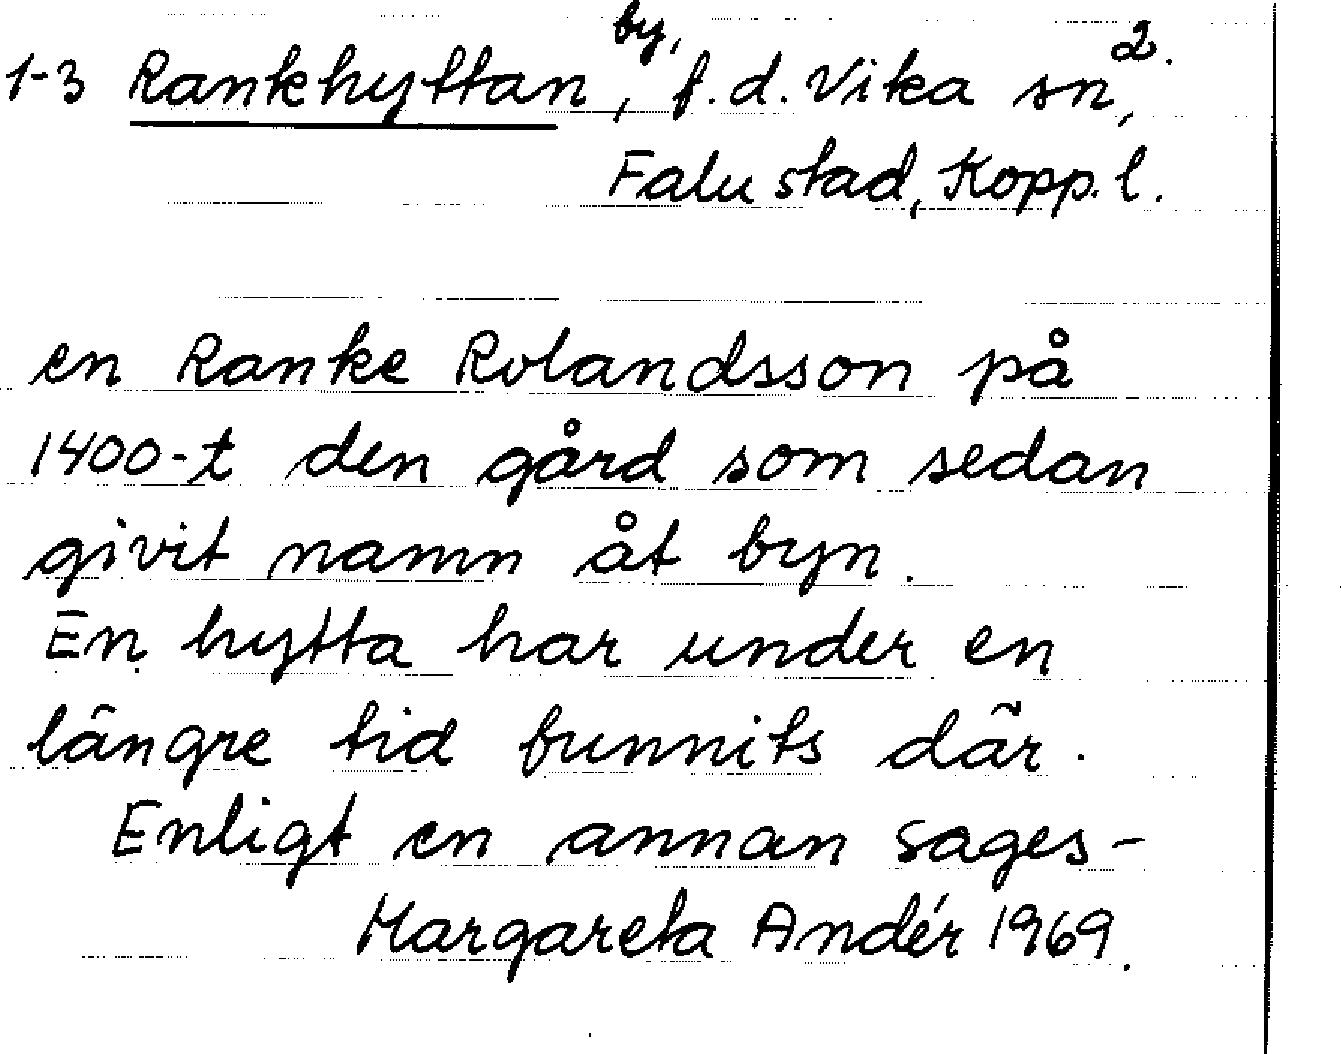 by,
2.
1-3 Rankhyttan, f.d. Vika sn,
Falu stad, Kopp. l.
en Ranke Rolandsson på
1400-t den gård som sedan
givit namn åt byn.
En hytta har under en
längre tid funnits där.
Enligt en annan sages-
Margareta Andér 1969.